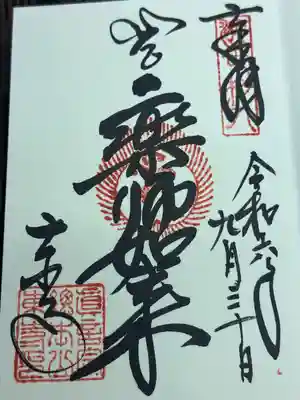 奉拝
令和六年
九月二十日
薬師如来
東寺